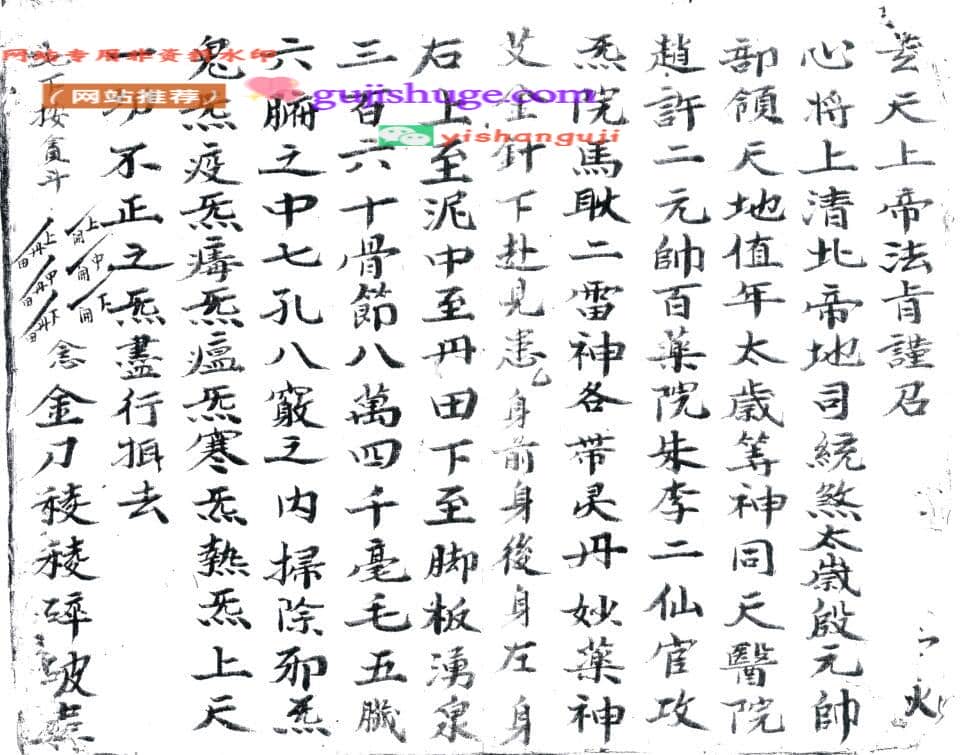 天上帝法旨謹召
心将上清北帝地司統煞太歲殷元帥
部領天地值年太歲等神同天醫院
趙許二元帥百薬院朱李二仙官攻
炁院馬耿二雷神各带灵丹妙薬神
艾金针下赴見患身前身後身左身
右上至泥中至丹田下至脚板湧泉
三百六十骨節八萬四千毫毛五臟
六腑之中七孔八竅之内掃除邪炁
鬼炁疫炁瘴炁瘟炁寒炁熱炁上天
一切不正之炁盡行揖去
下按 斗
上開
中開
下開
上丹田
中丹田
下丹田
念金刀稜稜碎破
火
网站专用非资料水印
(网站推荐)
gujishuge.com
yishanguji